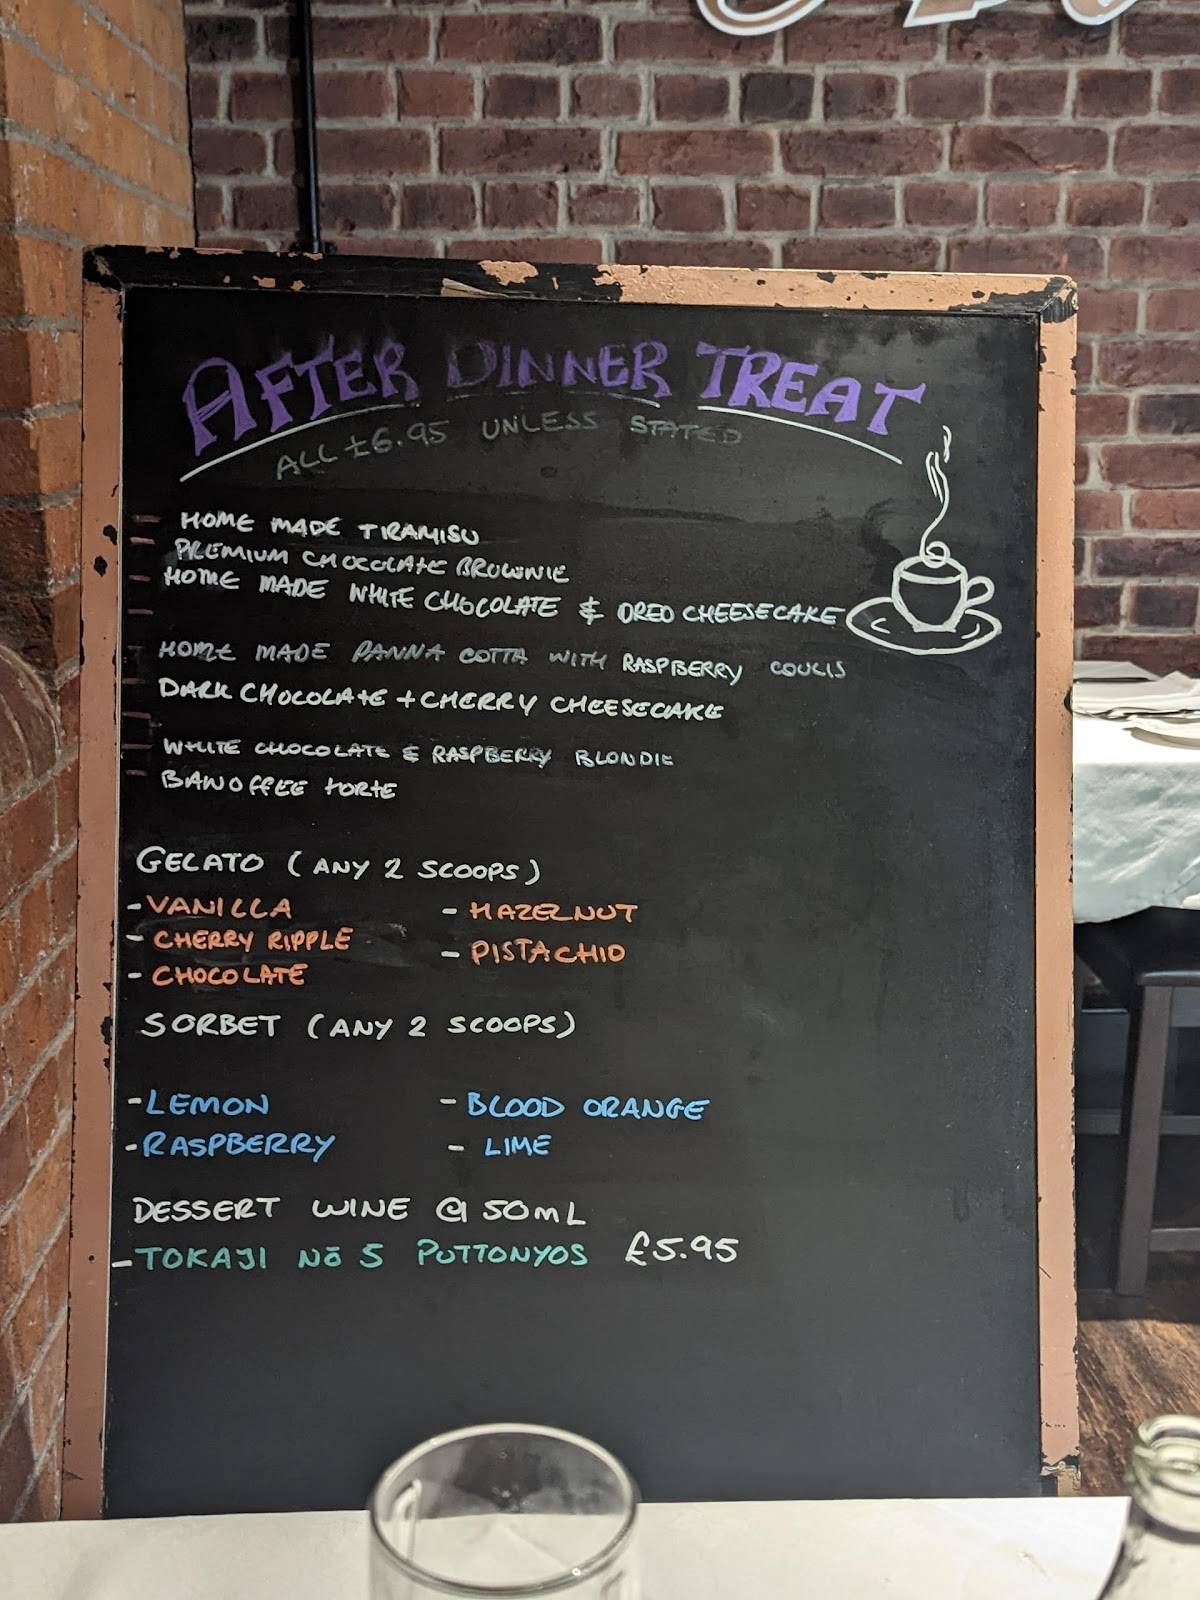 AFTER DINNER TREAT
ALL £6.95 UNLESS STATED
- HOME MADE TIRAMISU
- PREMIUM CHOCOLATE BROWNIE
- HOME MADE WHITE CHOCOLATE & OREO CHEESECAKE
- HOME MADE PANNA COTTA WITH RASPBERRY COULIS
- DARK CHOCOLATE + CHERRY CHEESECAKE
- WHITE CHOCOLATE & RASPBERRY BLONDIE
- BANOFFEE TORTE
GELATO (ANY 2 SCOOPS)
- VANILLA - HAZELNUT
- CHERRY RIPPLE - PISTACHIO
- CHOCOLATE
SORBET (ANY 2 SCOOPS)
- LEMON - BLOOD ORANGE
- RASPBERRY - LIME
DESSERT WINE @ 50ML
- TOKAJI No 5 PUTTONYOS £5.95